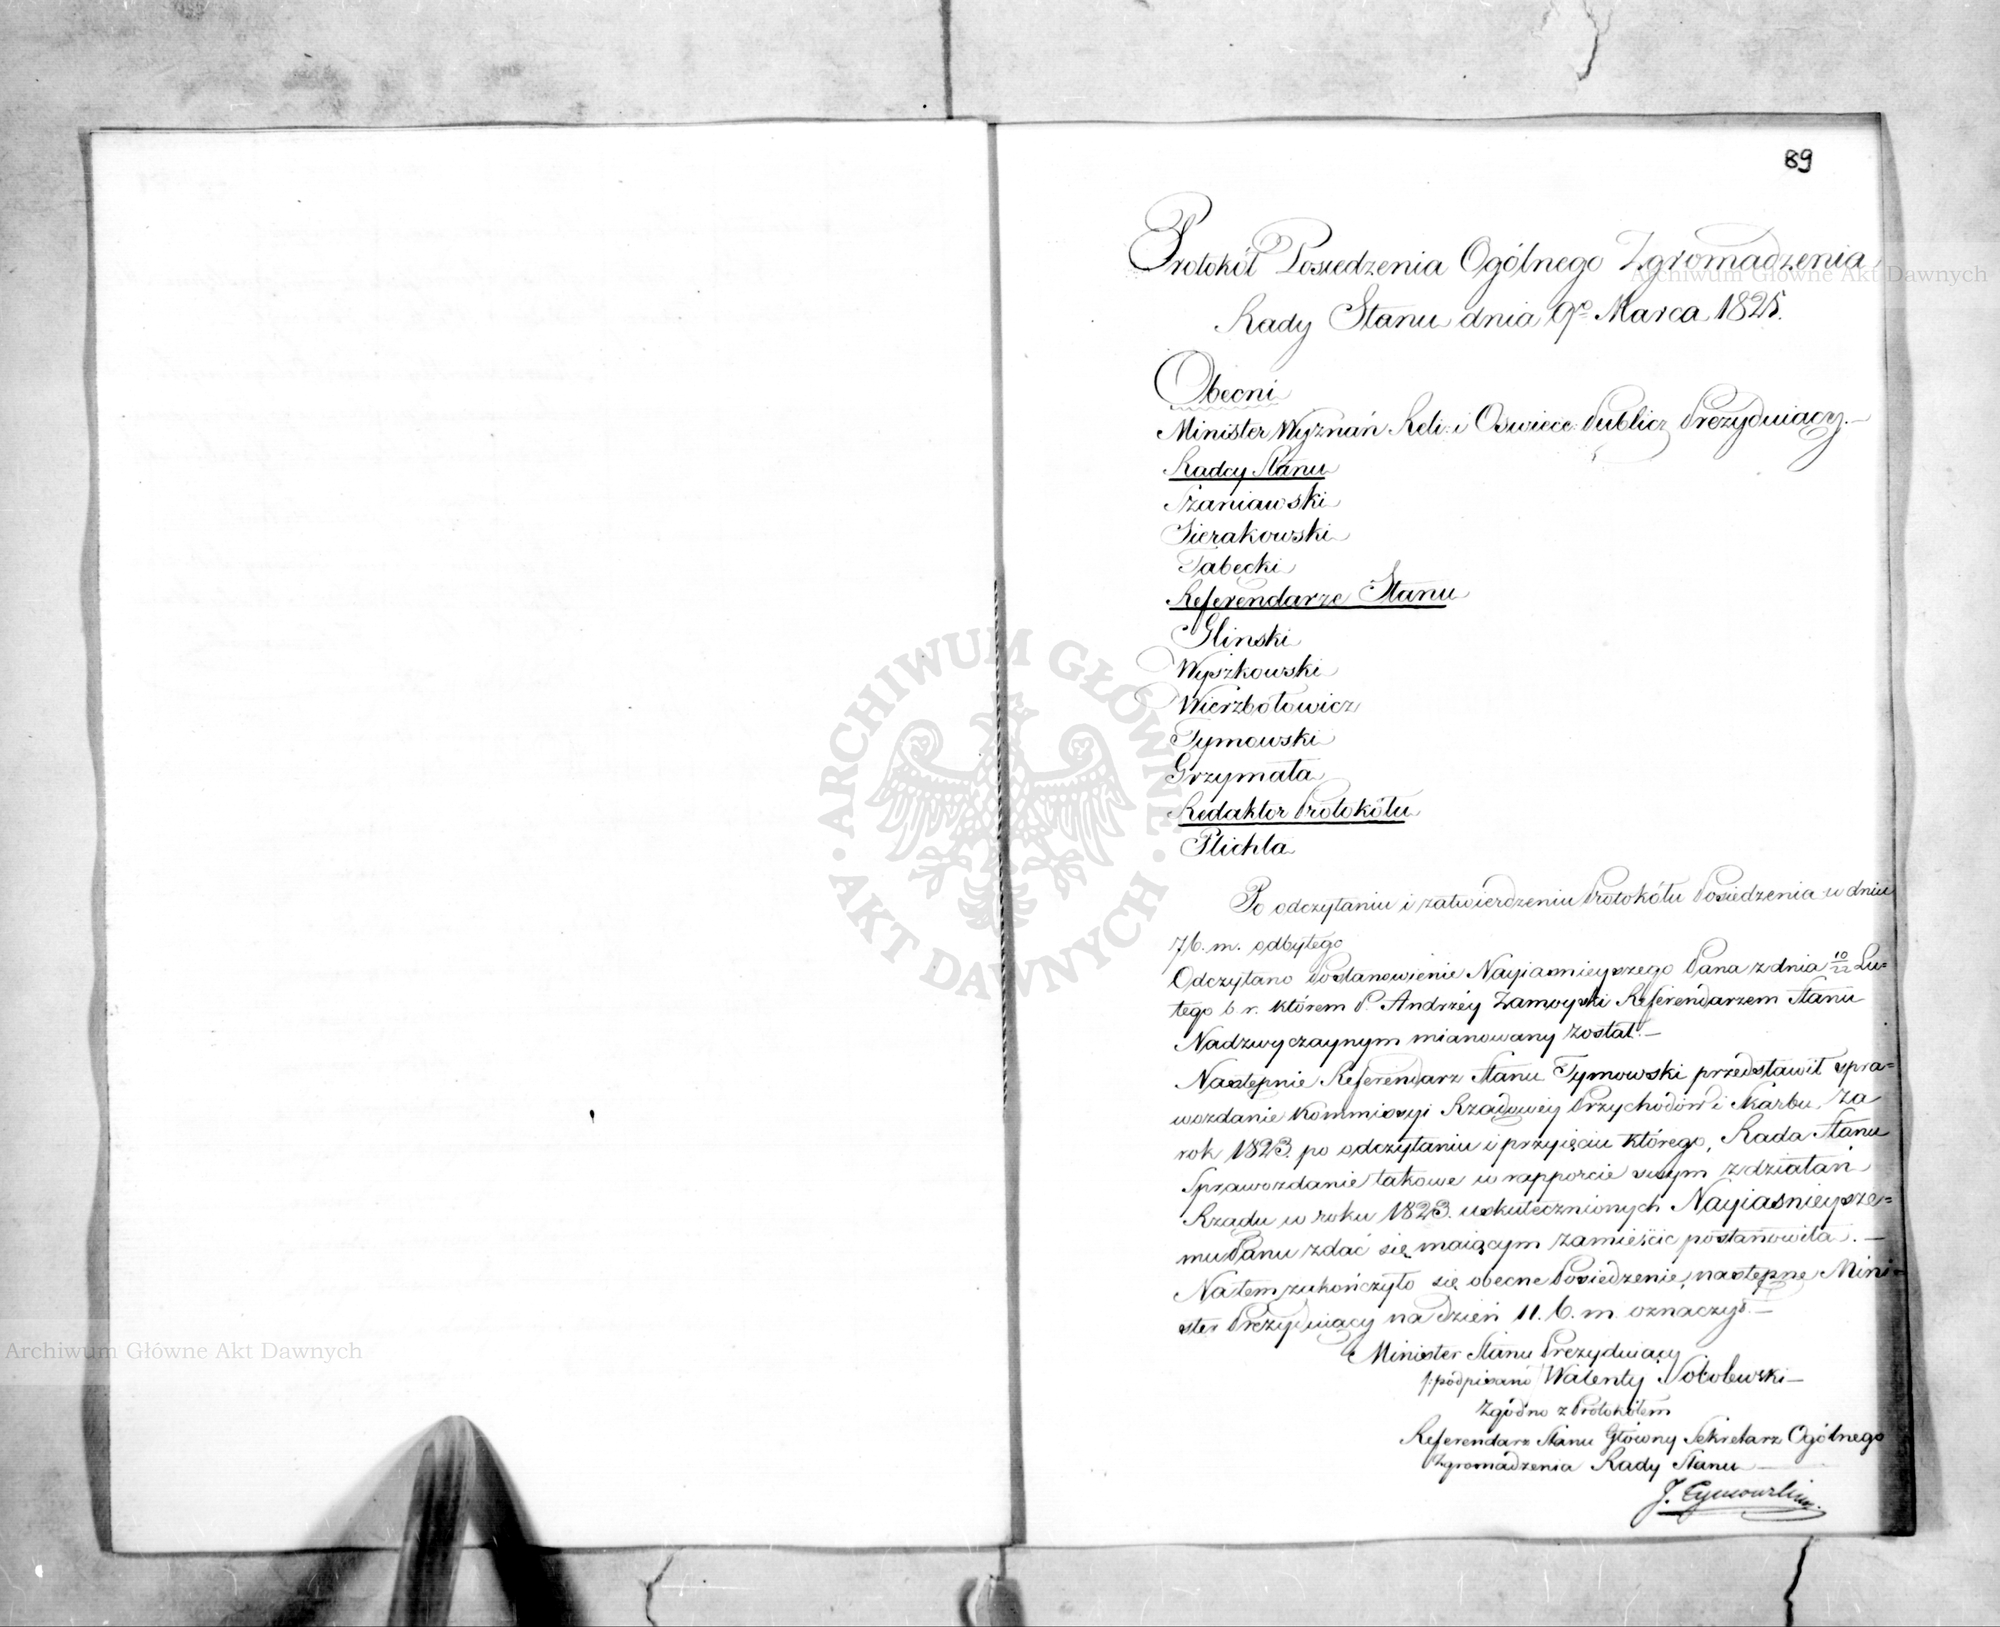 89
Protokół Posiedzenia Ogólnego Zgromadzenia
Rady Stanu dnia 9go Marca 1825.
Obecni
Minister Wyznań Reli: i Oswiece: Publicz Prezyduiący.—
Radcy Stanu
Szaniawski
Sierakowski
Tabęcki
Referendarze Stanu
Gliński
Wyszkowski
Wierzbołowicz
Tymowski
Grzymała
Redaktor Protokółu
Plichta
Po odczytaniu i zatwierdzeniu Protokółu Posiedzenia w dniu
7 b. m. odbytego
Odczytano Postanowienie Nayiasnieyszego Pana z dnia 10/22 Lu=
tego b. r. którem P. Andrzéy Zamoyski Referendarzem Stanu
Nadzwyczaynym mianowany został.—
Następnie Referendarz Stanu Tymowski przedstawił spra=
wozdanie Kommissyi Rządowéy Przychodów i Skarbu, za
rok 1823. po odczytaniu i przyięciu którego, Rada Stanu
Sprawozdanie takowe w rapporcie swym z działań
Rządu w roku 1823. uskutecznionych Nayiaśnieysze=
mu Panu zdać się maiącym zamieścić postanowiła.—
Na tem zukończyło się obecne Posiedzenie, następne Mini=
ster Prezyduiący na dzień 11. b. m. oznaczył.—
Minister Stanu Prezyduiący
/:podpisano/ Walenty Sobolewski—
Zgodno z Protokółem
Referendarz Stanu Główny Sekretarz Ogólnego
Zgromadzenia Rady Stanu
J. Tymowski
Archiwum Główne Akt Dawnych
Archiwum Główne Akt Dawnych
ARCHIWUM GŁÓWNE · AKT DAWNYCH ·